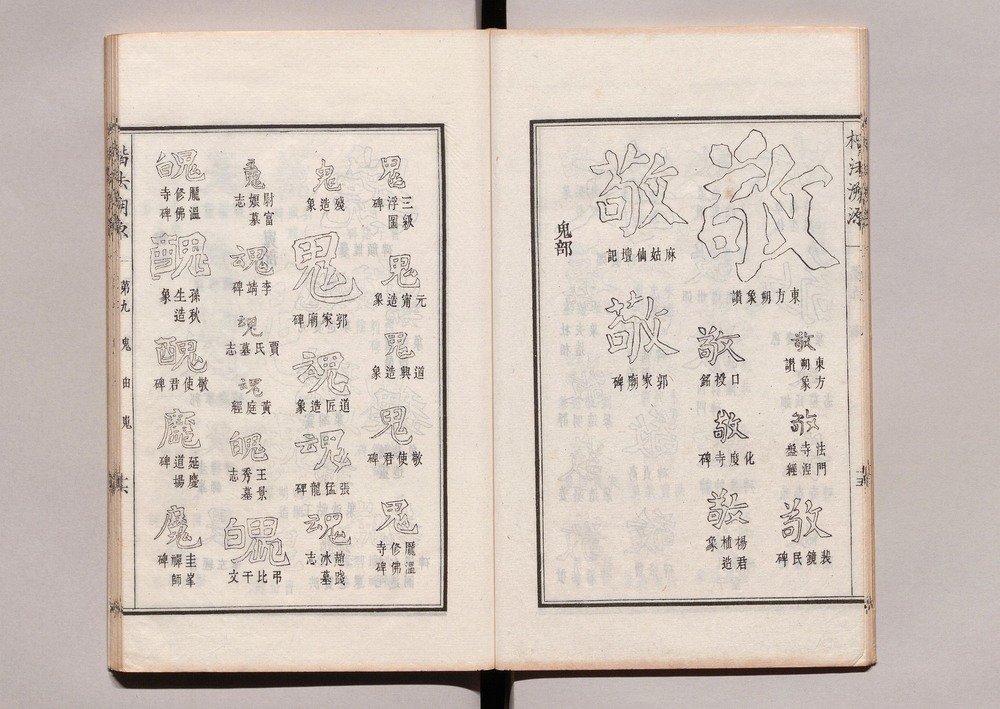 楷法溯源
敬
東方朔象讚
敬
東方朔象讚
敬
法門寺浧盤經
敬
裴鏡民碑
敬
口授銘
敬
化度寺碑
敬
楊君植造象
敬
麻姑仙壇記
敬
郭家廟碑
鬼部
鬼
三級浮圖碑
鬼
元甯造象
鬼
道興造象
鬼
敬使君碑
鬼
龐溫修佛寺碑
鬼
殘造象
鬼
郭家廟碑
魂
道匠造象
魂
張猛龍碑
魂
趙冰踐墓志
尉富孃墓志
魂
李靖碑
魂
賈氏墓志
魂
黃庭經
魄
王景秀墓志
魄
弔比干文
魄
龐溫修佛寺碑
醜
孫秋生造象
醜
敬使君碑
魔
延慶道場碑
魔
圭峯禪師碑
第九
鬼
由
嵬